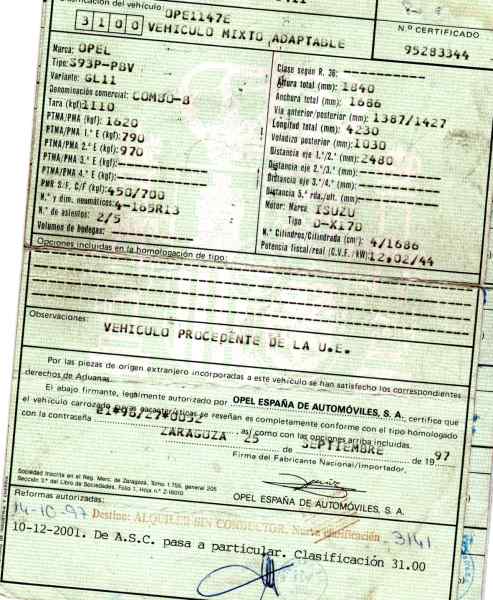 Clasificación del vehículo:
OPE1147E
3100 VEHICULO MIXTO ADAPTABLE
N.º CERTIFICADO
95283344
Marca: OPEL
Tipo: S93P-PBV
Variante: GL11
Denominación comercial: COMBO-B
Tara (kgf): 1110
PTMA/PMA (kgf): 1620
PTMA/PMA 1.º E (kgf): 790
PTMA/PMA 2.º E (kgf): 970
PTMA/PMA 3.º E (kgf):
PTMA/PMA 4.º E (kgf):
PMR S/F, C/F (kgf): 450/700
N.º y dim. neumáticos: 4-165R13
N.º de asientos: 2/5
Volumen de bodegas:
Clase según R. 36:
Altura total (mm): 1840
Anchura total (mm): 1686
Vía anterior/posterior (mm): 1387/1427
Longitud total (mm): 4230
Voladizo posterior (mm): 1030
Distancia eje 1.º/2.º (mm): 2480
Distancia eje 2.º/3.º (mm):
Distancia eje 3.º/4.º (mm):
Distancia 5.ª rda./ult. (mm):
Motor: Marca ISUZU
Tipo D-X17D
N.º Cilindros/Cilindrada (cm³): 4/1686
Potencia fiscal/real (C.V.F./kW): 12,02/44
Opciones incluidas en la homologación de tipo:
Observaciones:
VEHICULO PROCEDENTE DE LA U.E.
Por las piezas de origen extranjero incorporadas a este vehículo se han satisfecho los correspondientes
derechos de Aduanas.
El abajo firmante, legalmente autorizado por OPEL ESPAÑA DE AUTOMÓVILES, S. A., certifica que
el vehículo carrozado cuyas características se reseñan es completamente conforme con el tipo homologado
con la contraseña , así como con las opciones arriba incluidas.
ZARAGOZA 25 de SEPTIEMBRE de 1997
Firma del Fabricante Nacional/Importador,
Sociedad inscrita en el Reg. Merc. de Zaragoza, Tomo 1.755, general 205
Sección 3.ª del Libro de Sociedades, Folio 1, Hoja n.º Z-16010
OPEL ESPAÑA DE AUTOMÓVILES, S. A.
Reformas autorizadas:
14-10-97 Destino: ALQUILER SIN CONDUCTOR. Nueva clasificación 3141
10-12-2001. De A.S.C. pasa a particular. Clasificación 31.00